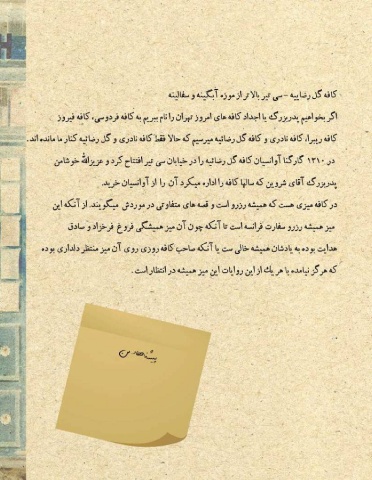 کافه گل رضاییه - سی تیر بالاتر از موزه آبگینه و سفالینه
اگر بخواهیم پدربزرگ یا اجداد کافه های امروز تهران را نام ببریم به کافه فردوسی، کافه فیروز
کافه ریبرا، کافه نادری و کافه گل رضائیه میرسیم که حالا فقط کافه نادری و گل رضائیه کنار ما مانده اند.
در ۱۳۱۰ گارگنا آوانسیان کافه گل رضائیه را در خیابان سی تیر افتتاح کرد و عزیزالله خوشامن
پدربزرگ آقای شروین که سالها کافه را اداره میکرد آن را از آوانسیان خرید.
در کافه میزی هست که همیشه رزرو است و قصه های متفاوتی در موردش میگویند. از آنکه این
میز همیشه رزرو سفارت فرانسه است تا آنکه چون آن میز همیشگی فروغ فرخزاد و صادق
هدایت بوده به یادشان همیشه خالی ست یا آنکه صاحب کافه روزی روی آن میز منتظر دلداری بوده
که هرگز نیامده با هر یک از این روایات این میز همیشه در انتظار است.